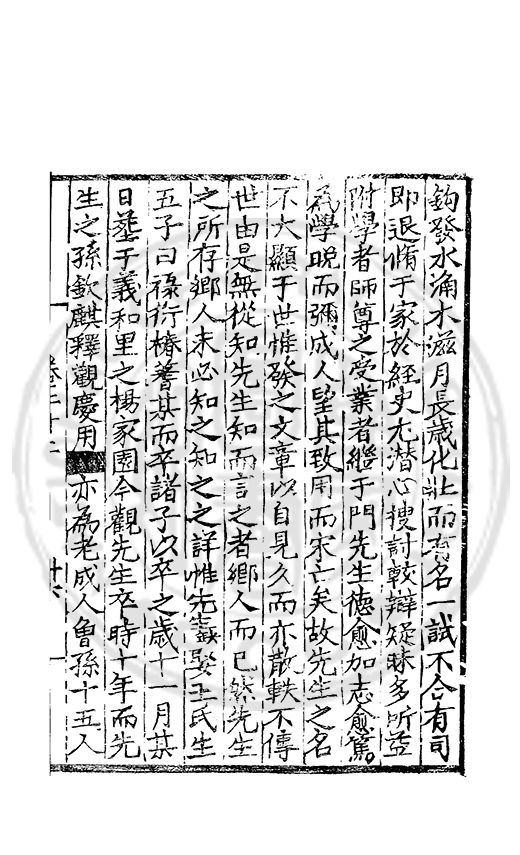 鈎發水涌木滋月長歲化壯而有名一試不合有司
即退脩于家於經史尤潜心搜討較辯疑昧多所
附學者師尊之受業者繼于門先生德愈加志愈篤
為學晚而彌成人望其致用而宋亡矣故先生之名
不大顯于世惟發之文章以自見久而亦散軼不傳
世由是無從知先生知而言之者鄉人而已然先生
之所存鄉人未必知之知之之詳惟先生娶王氏生
五子曰祿衍椿耆某而卒諸子以卒之歲十一月某
日塟于義和里之楊家園今觀先生卒時十年而先
生之孫欽麒釋觀慶用亦為老成人曾孫十五人
卷二十二
十六